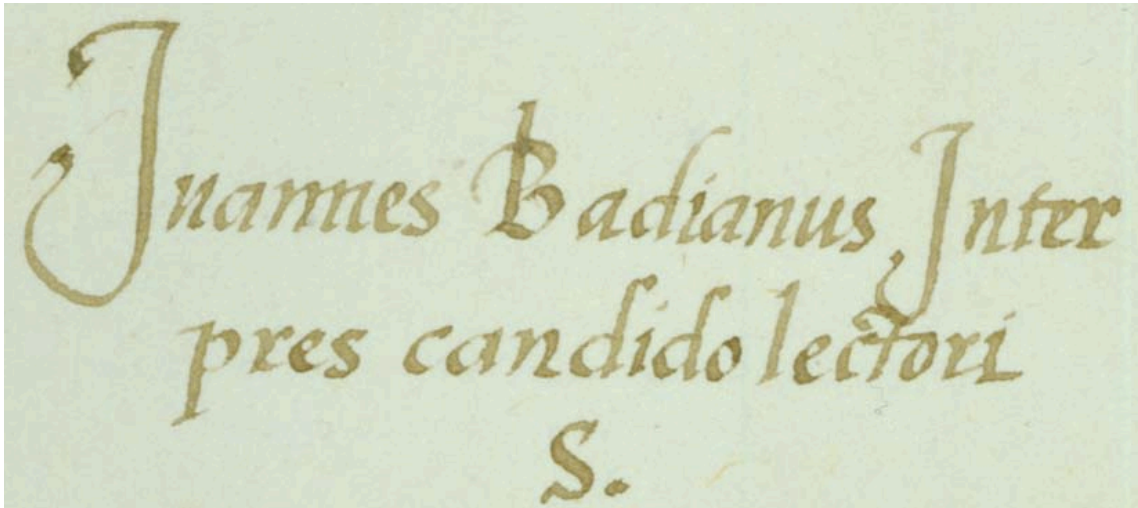 Juannes Badianus, Inter
pres candido lectori
S.